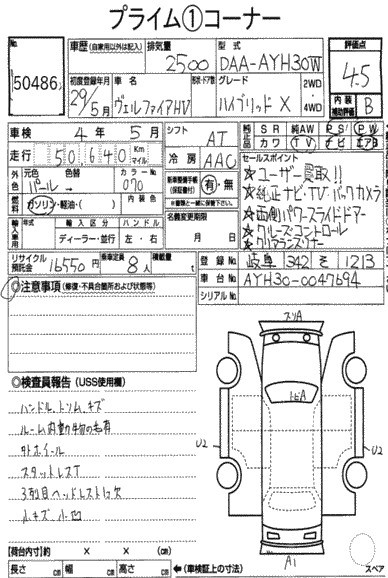 プライム①コーナー
No.
50486
車歴 (自家用以外は記入)
排気量
2500
型式
DAA-AYH30W
評価点
4.5
初度登録年月
29年5月
車名
ヴェルファイアHV
形状・ドア数
グレード
ハイブリッド X
2WD
4WD
内装
補助評価
B
車検 4年 5月
シフト
AT
純正品
SR 純AW PS PW
カワ TV ナビ エアB
走行 50,640 Km
マイル
冷房
AAC
セールスポイント
★ユーザー買取!!
★純正ナビ・TV・バックカメラ
★両側パワースライドドアー
★クルーズコントロール
★クリアランスソナー
外色
元色
パール→
色替
カラーNo.
070
新車整備手帳
(保証書付)
有・無
※書類と一緒に保管下さい。
燃料
ガソリン・軽油・( )
内装色
名義変更期限
月 日
輸入車用
年式
輸入区分
ディーラー・並行
ハンドル
左・右
リサイクル
預託金
16550円
乗車定員
8人
積載量
t
登録No.
岐阜 342 そ 1213
車台No.
AYH30-0047694
シリアルNo.
◎注意事項 (修復・不具合箇所および状態等)
◎検査員報告 (USS使用欄)
ハンドル、トリム、キズ
ルーム内動物の毛有
外ホイール
スタットレスT
3列目ヘッドレスト1ヶ欠
小キズ 小凹
スリA
トビA
U2
U2
A1
スペア
[荷台内寸] × × [荷台形状]
長さ cm 幅 cm 高さ cm
←(車検証上の寸法)